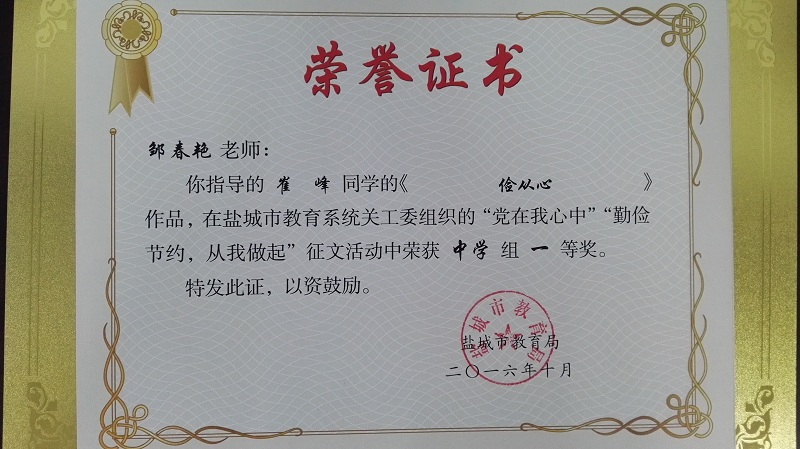 荣誉证书
邹春艳 老师：
你指导的 崔 峰 同学的《 俭从心 》
作品，在盐城市教育系统关工委组织的“党在我心中”“勤俭
节约，从我做起”征文活动中荣获 中学 组 一 等奖。
特发此证，以资鼓励。
盐城市教育局
盐城市教育局
二〇一六年十月